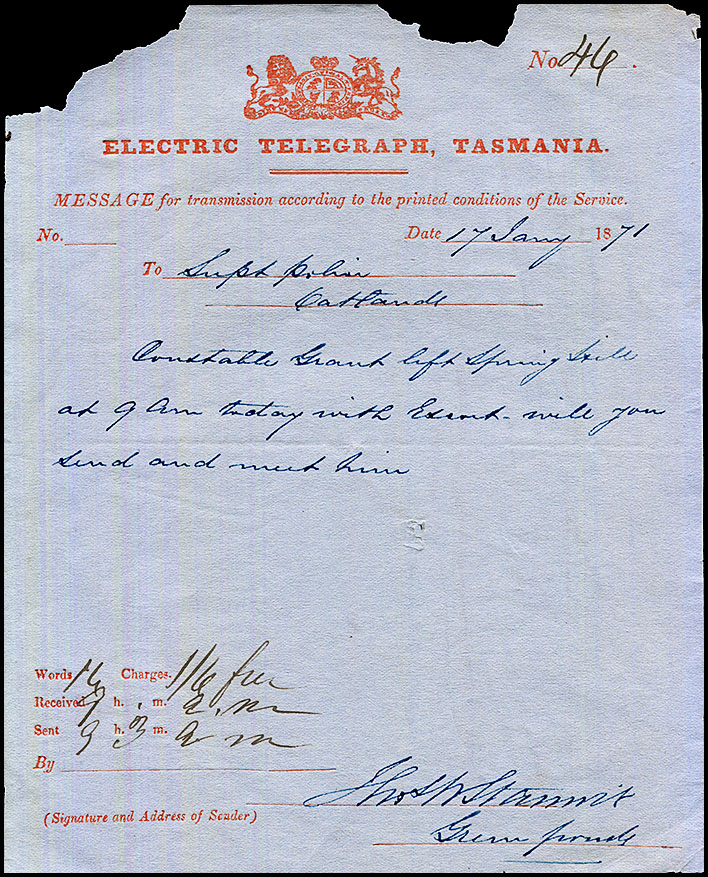 No 46.
ELECTRIC TELEGRAPH, TASMANIA.
MESSAGE for transmission according to the printed conditions of the Service.
No. Date 17 Jany 1871
To Supt police
Oatlands
Constable Grant left Spring Hill
at 9 Am today with Escort - will you
send and meet him
Words 16 Charges. 1/6 free
Received 9 h. , m. a.m
Sent 9 h. 3 m. a m
By
(Signature and Address of Sender)
Green ponds